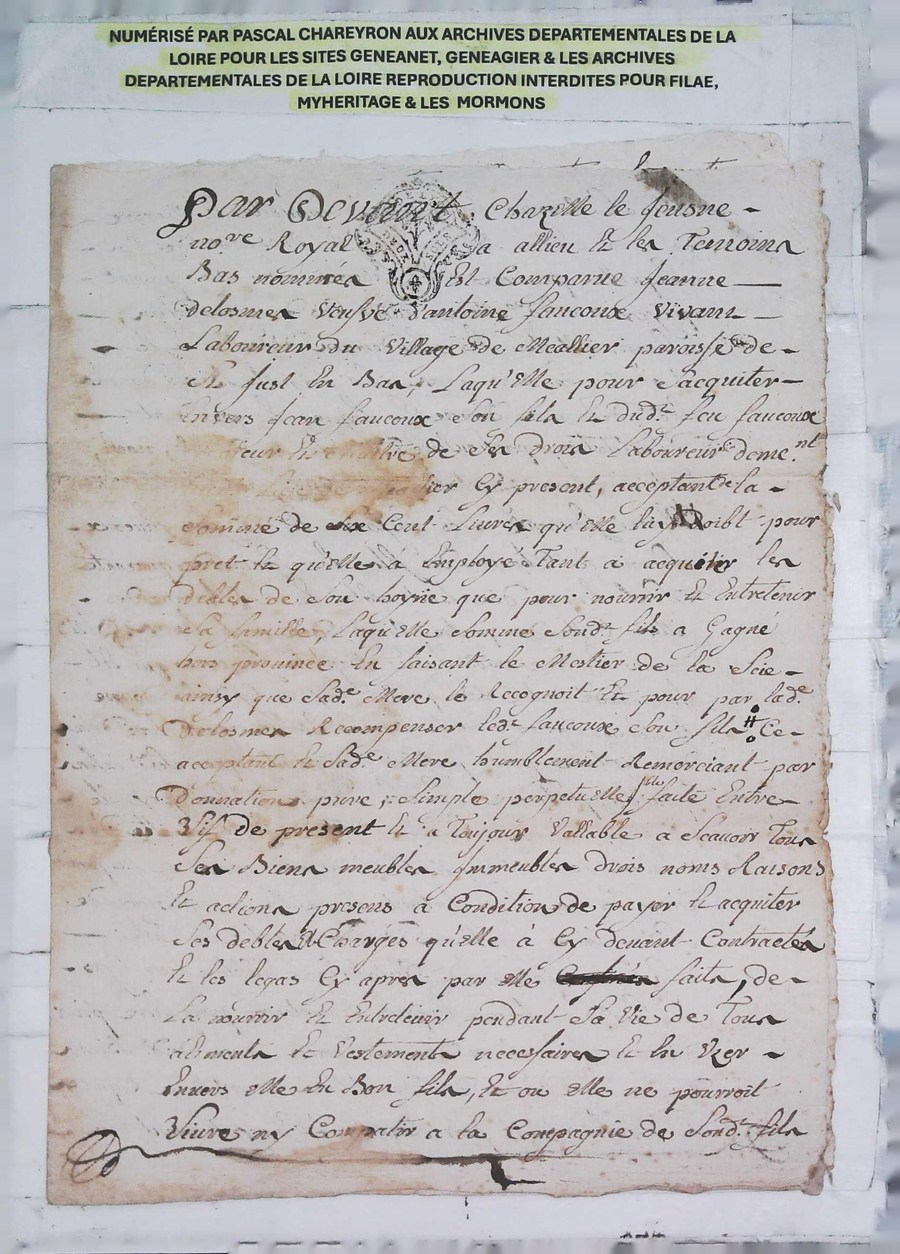 NUMÉRISÉ PAR PASCAL CHAREYRON AUX ARCHIVES DEPARTEMENTALES DE LA
LOIRE POUR LES SITES GENEANET, GENEAGIER & LES ARCHIVES
DEPARTEMENTALES DE LA LOIRE REPRODUCTION INTERDITES POUR FILAE,
MYHERITAGE & LES MORMONS
Par Devant Chazelle le jeusne -
no.re Royal a allieu Et les Temoins
Bas nommés Est Comparue Jeanne
delosmes Veufve d'antoine faucoux Vivant
Laboureur du Village de Meallier paroisse de -
St Just En Bas, Laqu'Elle pour S'acquiter -
Envers Jean faucoux son fils Et dud.t feu faucoux
de Ses Droits Laboureur deme.nt
Cy present, acceptant la -
Somme de six Cent Livres qu'elle luy Doibt pour
pret Et qu'elle à Employé Tant a acquiter les
debtes de Son hoyrie que pour nourrir Et Entretenir
Sa famille, Laqu'Elle Somme Sond.t fils a Gagné
hors province En faisant le Mestier de la Scie -
ainsy que Sad.e Mere le Recognoit Et pour par lad.e
Delosmes Recompenser led.t faucoux Son fils # Ce -
acceptant Et Sad.e Mere humblement Remerciant par
Donnation pure, Simple perpetuelle faite Entre -
Vif de present Et a Toujour Vallable a Scavoir Tous
Ses Biens meubles Immeubles drois noms Raisons
Et actions presens a Condition de payer Et acquiter
Ses debtes & Charges qu'elle à Cy devant Contractés
Et les legas Cy apres par elle faits, de -
La nourrir Et Entretenir pendant Sa Vie de Tous
aliments Et Vestements necessaires Et En Uzer -
Envers elle En Bon fils, Et ou elle ne pourroit
Vivre ny Compatir a la Compagnie de Sond.t fils